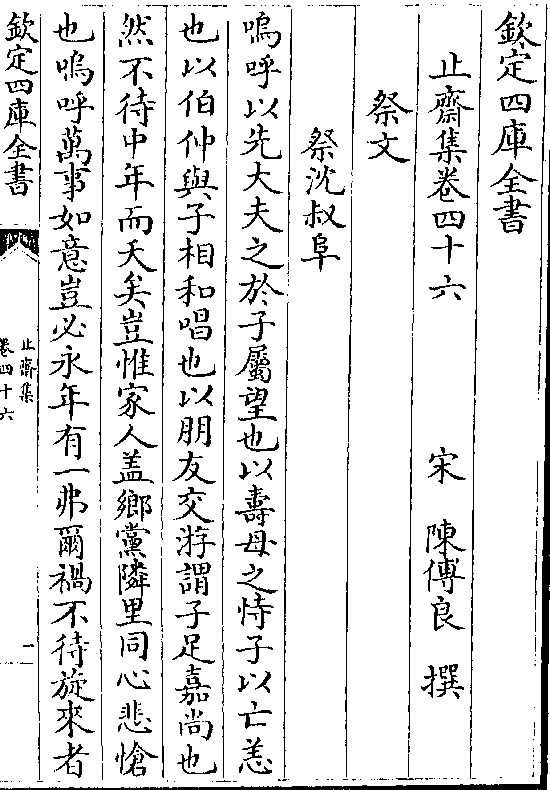 欽定四庫全書
止齋集卷四十六
宋 陳傅良 撰
祭文
祭沈叔阜
嗚呼以先大夫之於子屬望也以壽母之恃子以亡恙
也以伯仲與子相和唱也以朋友交游謂子足嘉尚也
然不待中年而夭矣豈惟家人盖鄉黨隣里同心悲愴
也嗚呼萬事如意豈必永年有一弗爾禍不待旋來者
欽定四庫全書
止齋集
卷四十六
一